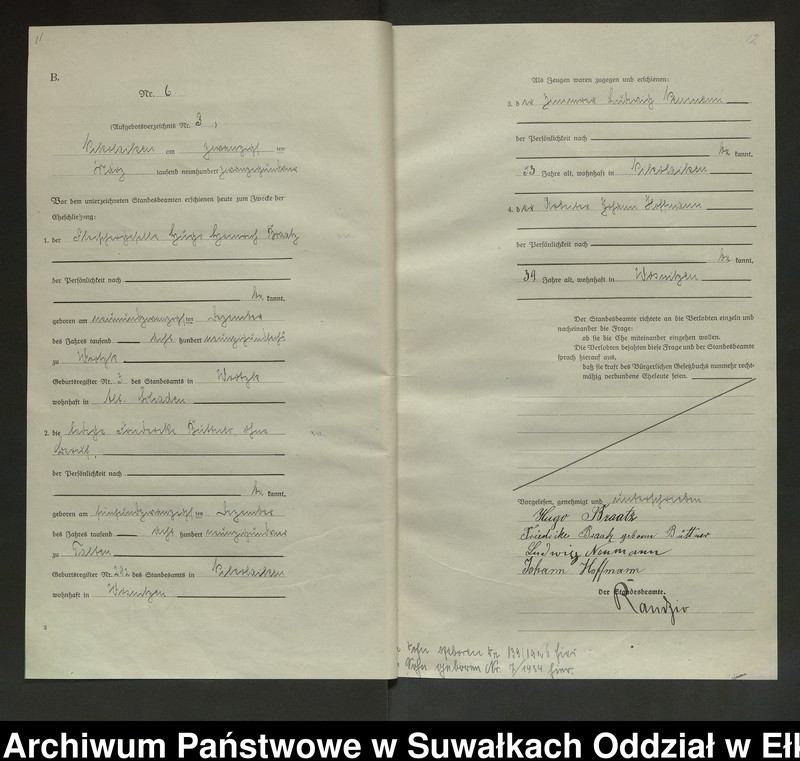 11
B.
Nr. 6.
(Aufgebotsverzeichnis Nr. 3)
Nikolaiken am zwanzigsten
März tausend neunhundert
Vor dem unterzeichneten Standesbeamten erschienen heute zum Zwecke der
Eheschließung:
1. der Fleischergeselle Hugo Heinrich Braatz
der Persönlichkeit nach
be kannt,
geboren am neunundzwanzigsten Dezember
des Jahres tausend acht hundert
zu Wrotzk
Geburtsregister Nr. 3 des Standesamts in Wrotzk
wohnhaft in Alt
2. die ledige Friederike Büttner ohne
Beruf,
der Persönlichkeit nach
be kannt,
geboren am fünfundzwanzigsten Dezember
des Jahres tausend acht hundert
zu Talten
Geburtsregister Nr. 202 des Standesamts in Nikolaiken
wohnhaft in Wosnitzen
12
Als Zeugen waren zugegen und erschienen:
3. der Ludwig Neumann
der Persönlichkeit nach
be kannt,
53 Jahre alt, wohnhaft in Nikolaiken
4. der Arbeiter Johann Hoffmann
der Persönlichkeit nach
be kannt,
34 Jahre alt, wohnhaft in Wosnitzen
Der Standesbeamte richtete an die Verlobten einzeln und
nacheinander die Frage:
ob sie die Ehe miteinander eingehen wollen.
Die Verlobten bejahten diese Frage und der Standesbeamte
sprach hierauf aus,
daß sie kraft des Bürgerlichen Gesetzbuchs nunmehr recht-
mäßig verbundene Eheleute seien.
Vorgelesen, genehmigt und unterschrieben
Hugo Braatz
Friederike Braatz geborene Büttner
Ludwig Neumann
Johann Hoffmann
Der Standesbeamte.
Randzio
Sohn geboren Nr. hier
Sohn geboren Nr. 7/1934 hier.
Archiwum Państwowe w Suwałkach Oddział w Ełk